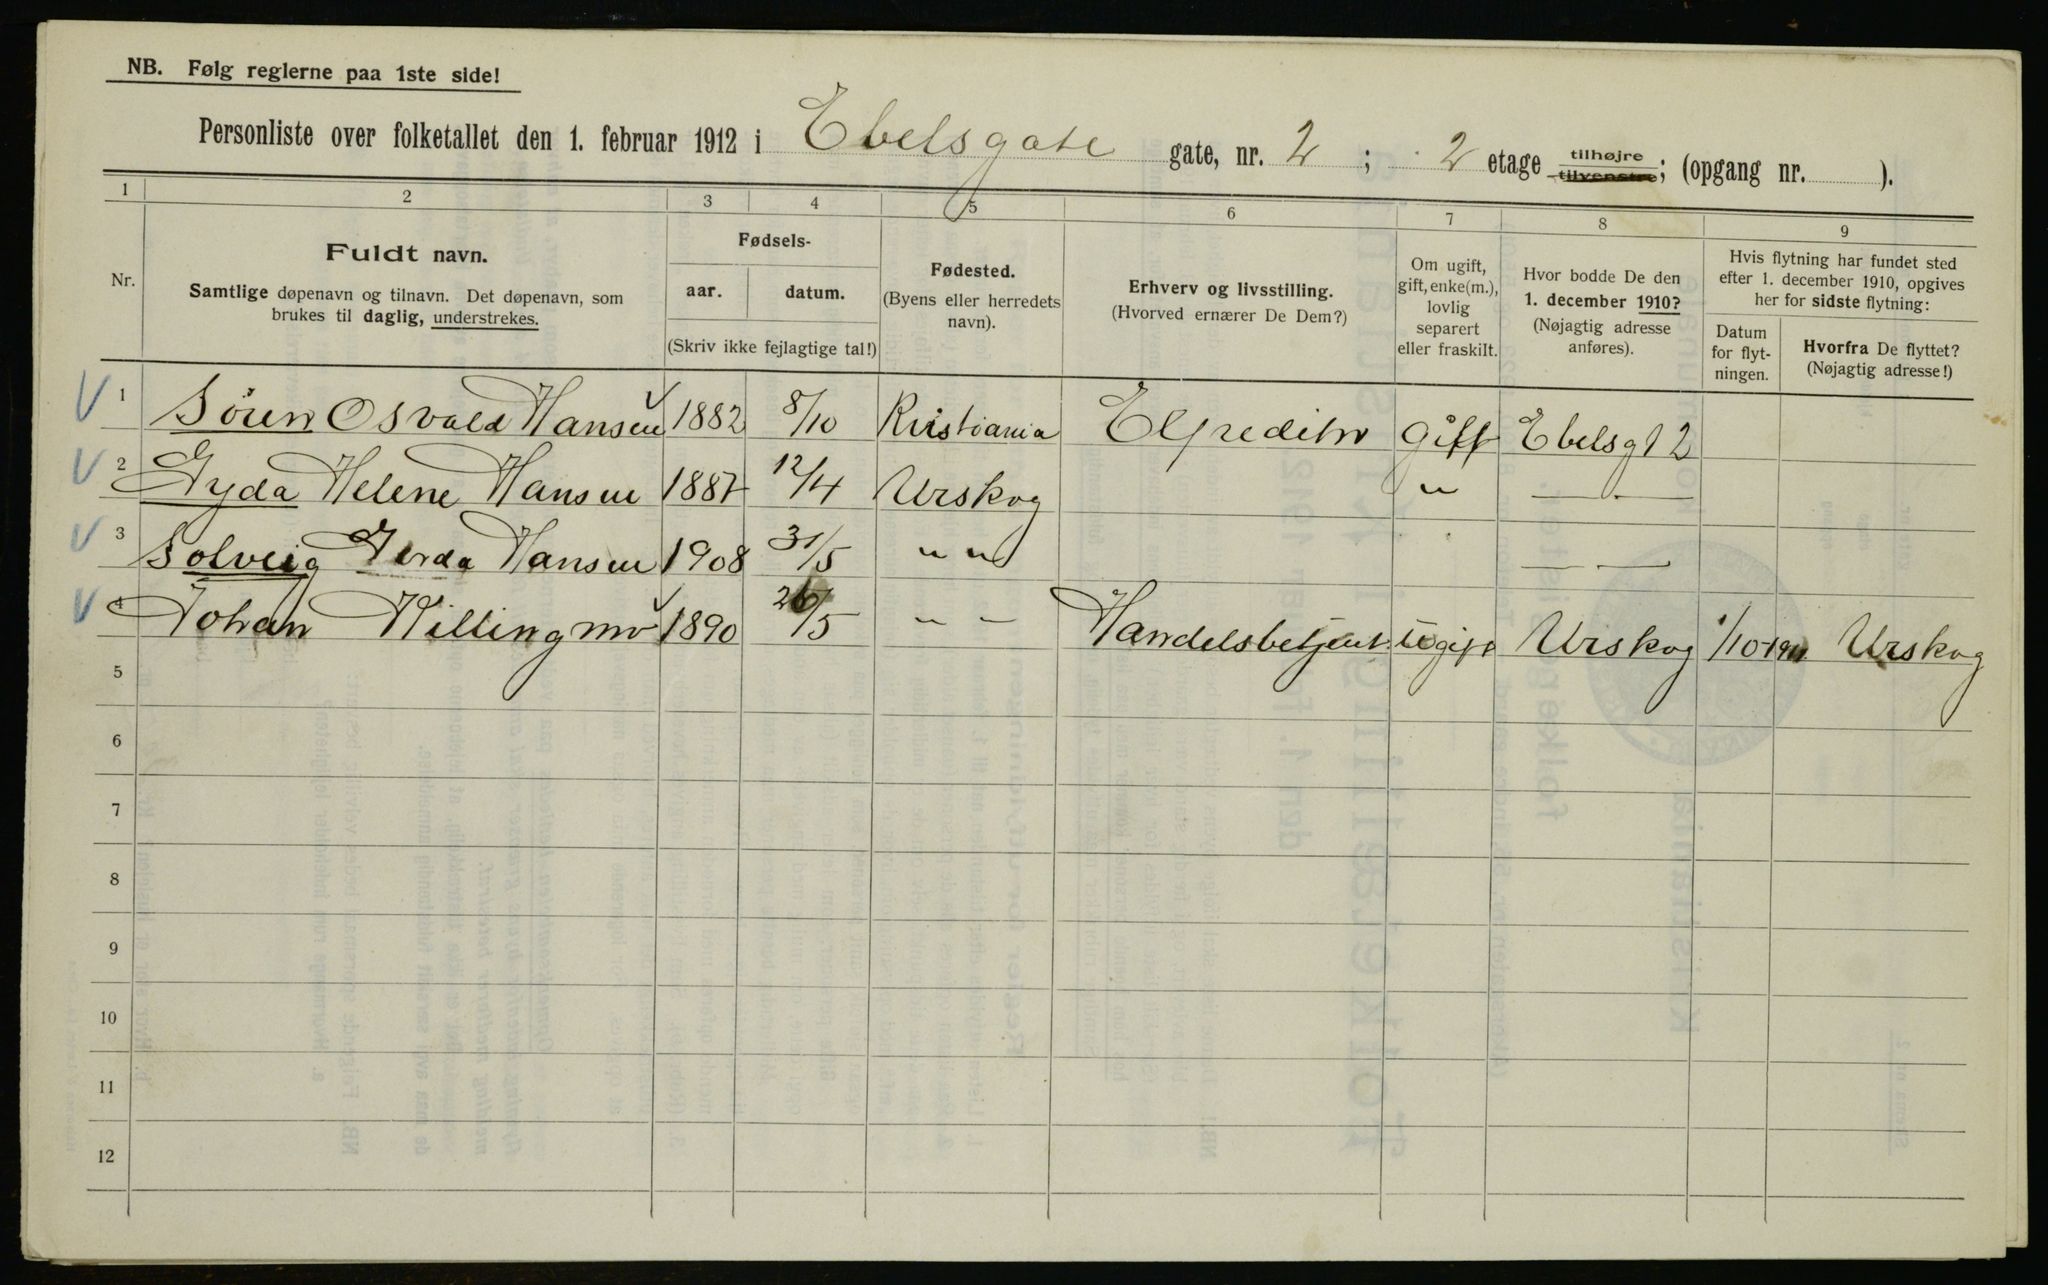 NB. Følg reglerne paa 1ste side!
Personliste over folketallet den 1. februar 1912 i Ebelsgate gate, nr. 2 ; 2 etage tilhøjre tilvenstre; (opgang nr. ).
1 2 3 4 5 6 7 8 9
Nr.
Fuldt navn.
Samtlige døpenavn og tilnavn. Det døpenavn, som
brukes til daglig, understrekes.
Fødsels-
aar. datum.
(Skriv ikke fejlagtige tal!)
Fødested.
(Byens eller herredets
navn).
Erhverv og livsstilling.
(Hvorved ernærer De Dem?)
Om ugift,
gift, enke(m.),
lovlig
separert
eller fraskilt.
Hvor bodde De den
1. december 1910?
(Nøjagtig adresse
anføres).
Hvis flytning har fundet sted
efter 1. december 1910, opgives
her for sidste flytning:
Datum
for flyt-
ningen.
Hvorfra De flyttet?
(Nøjagtig adresse!)
1 Sören Osvald Hansen 1882 8/10 Kristiania gift Ebelsgt 2
2 Gyda Helene Hansen 1887 12/4 Urskog " — —
3 Solveig Gerda Hansen 1908 31/5 " " — —
4 Johan Killingmo 1890 26/5 " " Handelsbetjent Ugift Urskog 1/10-1911 Urskog
5
6
7
8
9
10
11
12